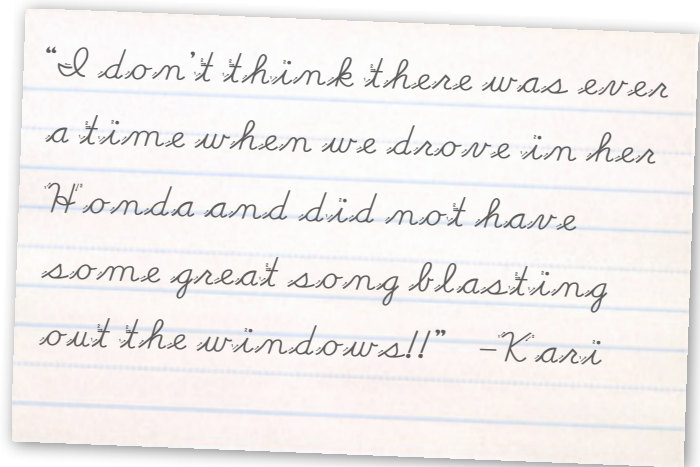 “I don’t think there was ever
a time when we drove in her
Honda and did not have
some great song blasting
out the windows!!” -Kari